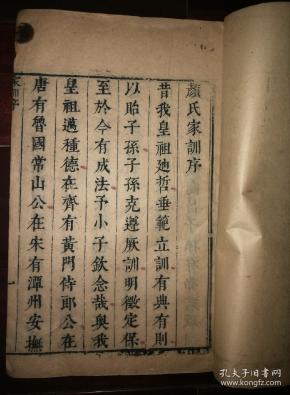 顏氏家訓序
昔我皇祖廸哲垂範立訓有典有則
以貽子孫子孫克遵厥訓明徵定保
至於今有成法予小子欽念哉與我
皇祖邁種德在齊有黃門侍郎公在
唐有魯國常山公在朱有潭州安撫
家訓序
孔夫子旧书网